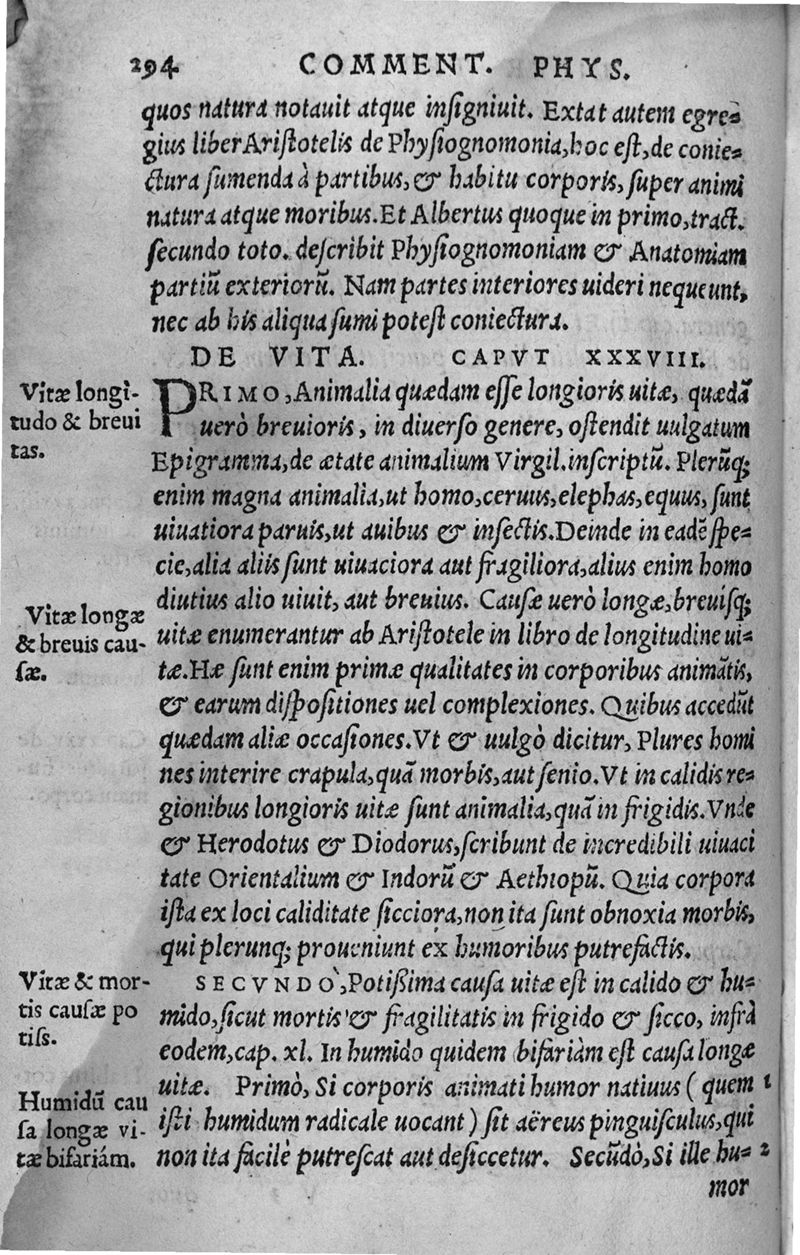 294 COMMENT. PHYS.
quos natura notauit atque insigniuit. Extat autem egre=
gius liber Aristotelis de Physiognomonia, hoc est, de conie=
ctura sumenda à partibus, & habitu corporis, super animi
natura atque moribus. Et Albertus quoque in primo, tract.
secundo toto. describit Physiognomoniam & Anatomiam
partiū exteriorū. Nam partes interiores uideri nequeunt,
nec ab his aliqua sumi potest coniectura.
DE VITA. CAPVT XXXVIII.
Vitæ longi-
tudo & breui
tas.
PRIMO, Animalia quædam esse longioris uitæ, quædā
uerò breuioris, in diuerso genere, ostendit uulgatum
Epigramma, de ætate animalium Virgil. inscriptū. Plerūq;
enim magna animalia, ut homo, ceruus, elephas, equus, sunt
uiuatiora paruis, ut auibus & insectis. Deinde in eadē spe=
cie, alia aliis sunt uiuaciora aut fragiliora, alius enim homo
diutius alio uiuit, aut breuius. Causæ uerò longæ, breuisq;
Vitæ longæ
& breuis cau-
sæ.
uitæ enumerantur ab Aristotele in libro de longitudine ui=
tæ. Hæ sunt enim primæ qualitates in corporibus animātis,
& earum dispositiones uel complexiones. Quibus accedūt
quædam aliæ occasiones. Vt & uulgò dicitur, Plures homi
nes interire crapula, quā morbis, aut senio. Vt in calidis re=
gionibus longioris uitæ sunt animalia, quā in frigidis. Vnde
& Herodotus & Diodorus, scribunt de incredibili uiuaci
tate Orientalium & Indorū & Aethiopū. Quia corpora
ista ex loci caliditate sicciora, non ita sunt obnoxia morbis,
qui plerunq; proueniunt ex humoribus putrefactis.
Vitæ & mor-
tis causæ po
tiss.
SECVNDO`, Potissima causa uitæ est in calido & hu=
mido, sicut mortis & fragilitatis in frigido & sicco, infrà
eodem, cap. xl. In humido quidem bifariàm est causa longæ
Humidū cau
sa longæ vi-
tæ bifariám.
uitæ. Primò, Si corporis animati humor natiuus ( quem 1
isti humidum radicale uocant ) sit aëreus pinguisculus, qui
non ita facilè putrescat aut desiccetur. Secūdò, Si ille hu= 2
mor